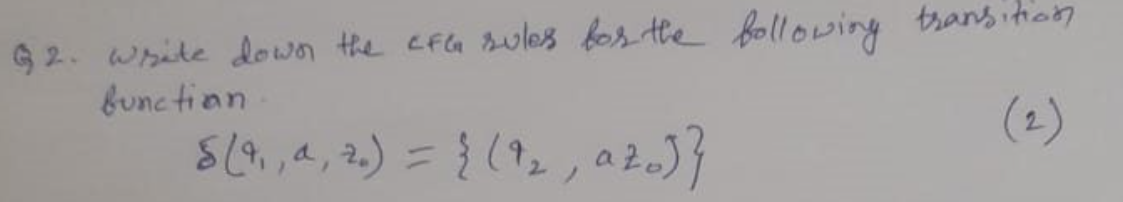 Q2. Write down the CFG rules for the following transition
function.
δ(q₁, a, z₀) = {(q₂, az₀)}
(2)